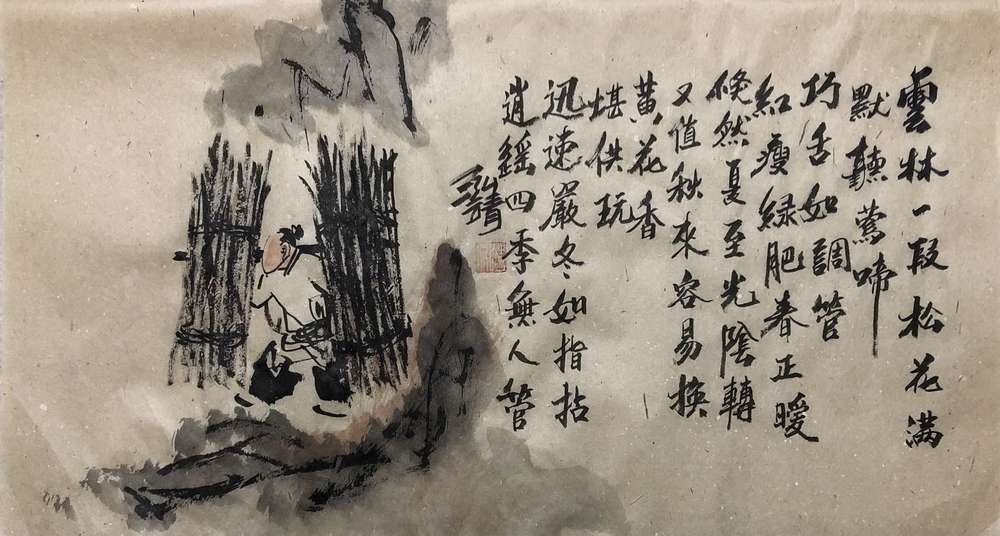 雲林一段松花满
默聽鶯啼
巧舌如調管
紅瘦緑肥春正暖
倏然夏至光陰轉
又值秋來容易换
黄花香
堪供玩
迅速嚴冬如指拈
逍遙四季無人管